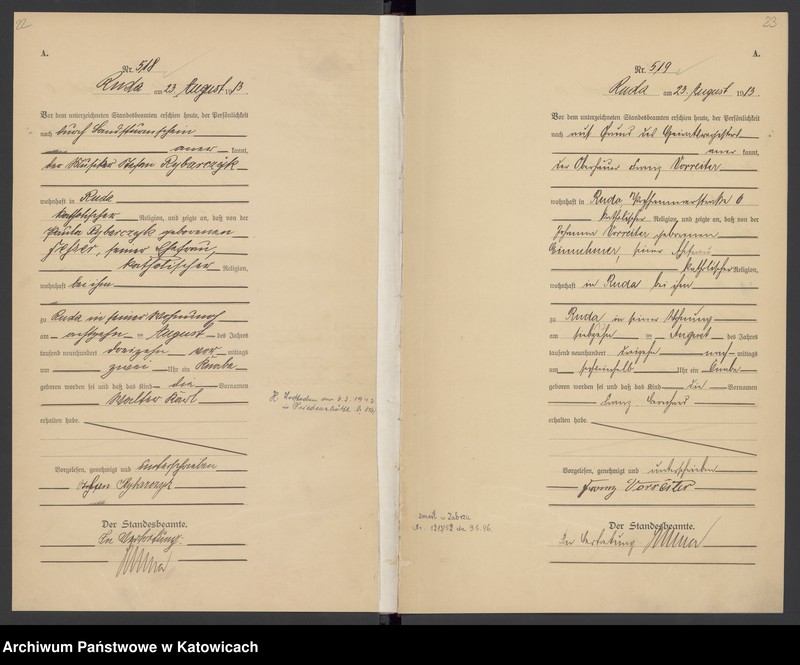 22
A.
Nr. 518
Ruda am 23. August 1913.
Vor dem unterzeichneten Standesbeamten erschien heute, der Persönlichkeit
nach durch Landsturmschein
aner kannt,
der Stefan Rybarczyk
wohnhaft in Ruda
katholischer Religion, und zeigte an, daß von der
Paula Rybarczyk geborenen
seiner Ehefrau,
katholischer Religion,
wohnhaft bei ihm
zu Ruda in seiner Wohnung
am achtzehn ten August des Jahres
tausend neunhundert dreizehn vor mittags
um zwei Uhr ein Knabe
geboren worden sei und daß das Kind die Vornamen
Walter Karl
erhalten habe.
Vorgelesen, genehmigt und unterschrieben
Stefan Rybarczyk
Der Standesbeamte.
In Vertretung.
23
A.
Nr. 519
Ruda am 23. August 1913.
Vor dem unterzeichneten Standesbeamten erschien heute, der Persönlichkeit
nach auf Grund des
aner kannt,
der Oberhäuer Franz Vorreiter
wohnhaft in Ruda 6
katholischer Religion, und zeigte an, daß von der
Johanna Vorreiter geborenen
seiner Ehefrau
katholischer Religion,
wohnhaft in Ruda bei ihm
zu Ruda in seiner Wohnung
am siebzehn ten August des Jahres
tausend neunhundert dreizehn nach mittags
um Uhr ein Knabe
geboren worden sei und daß das Kind die Vornamen
Franz
erhalten habe.
Vorgelesen, genehmigt und unterschrieben
Franz Vorreiter
Der Standesbeamte.
In Vertretung
Archiwum Państwowe w Katowicach